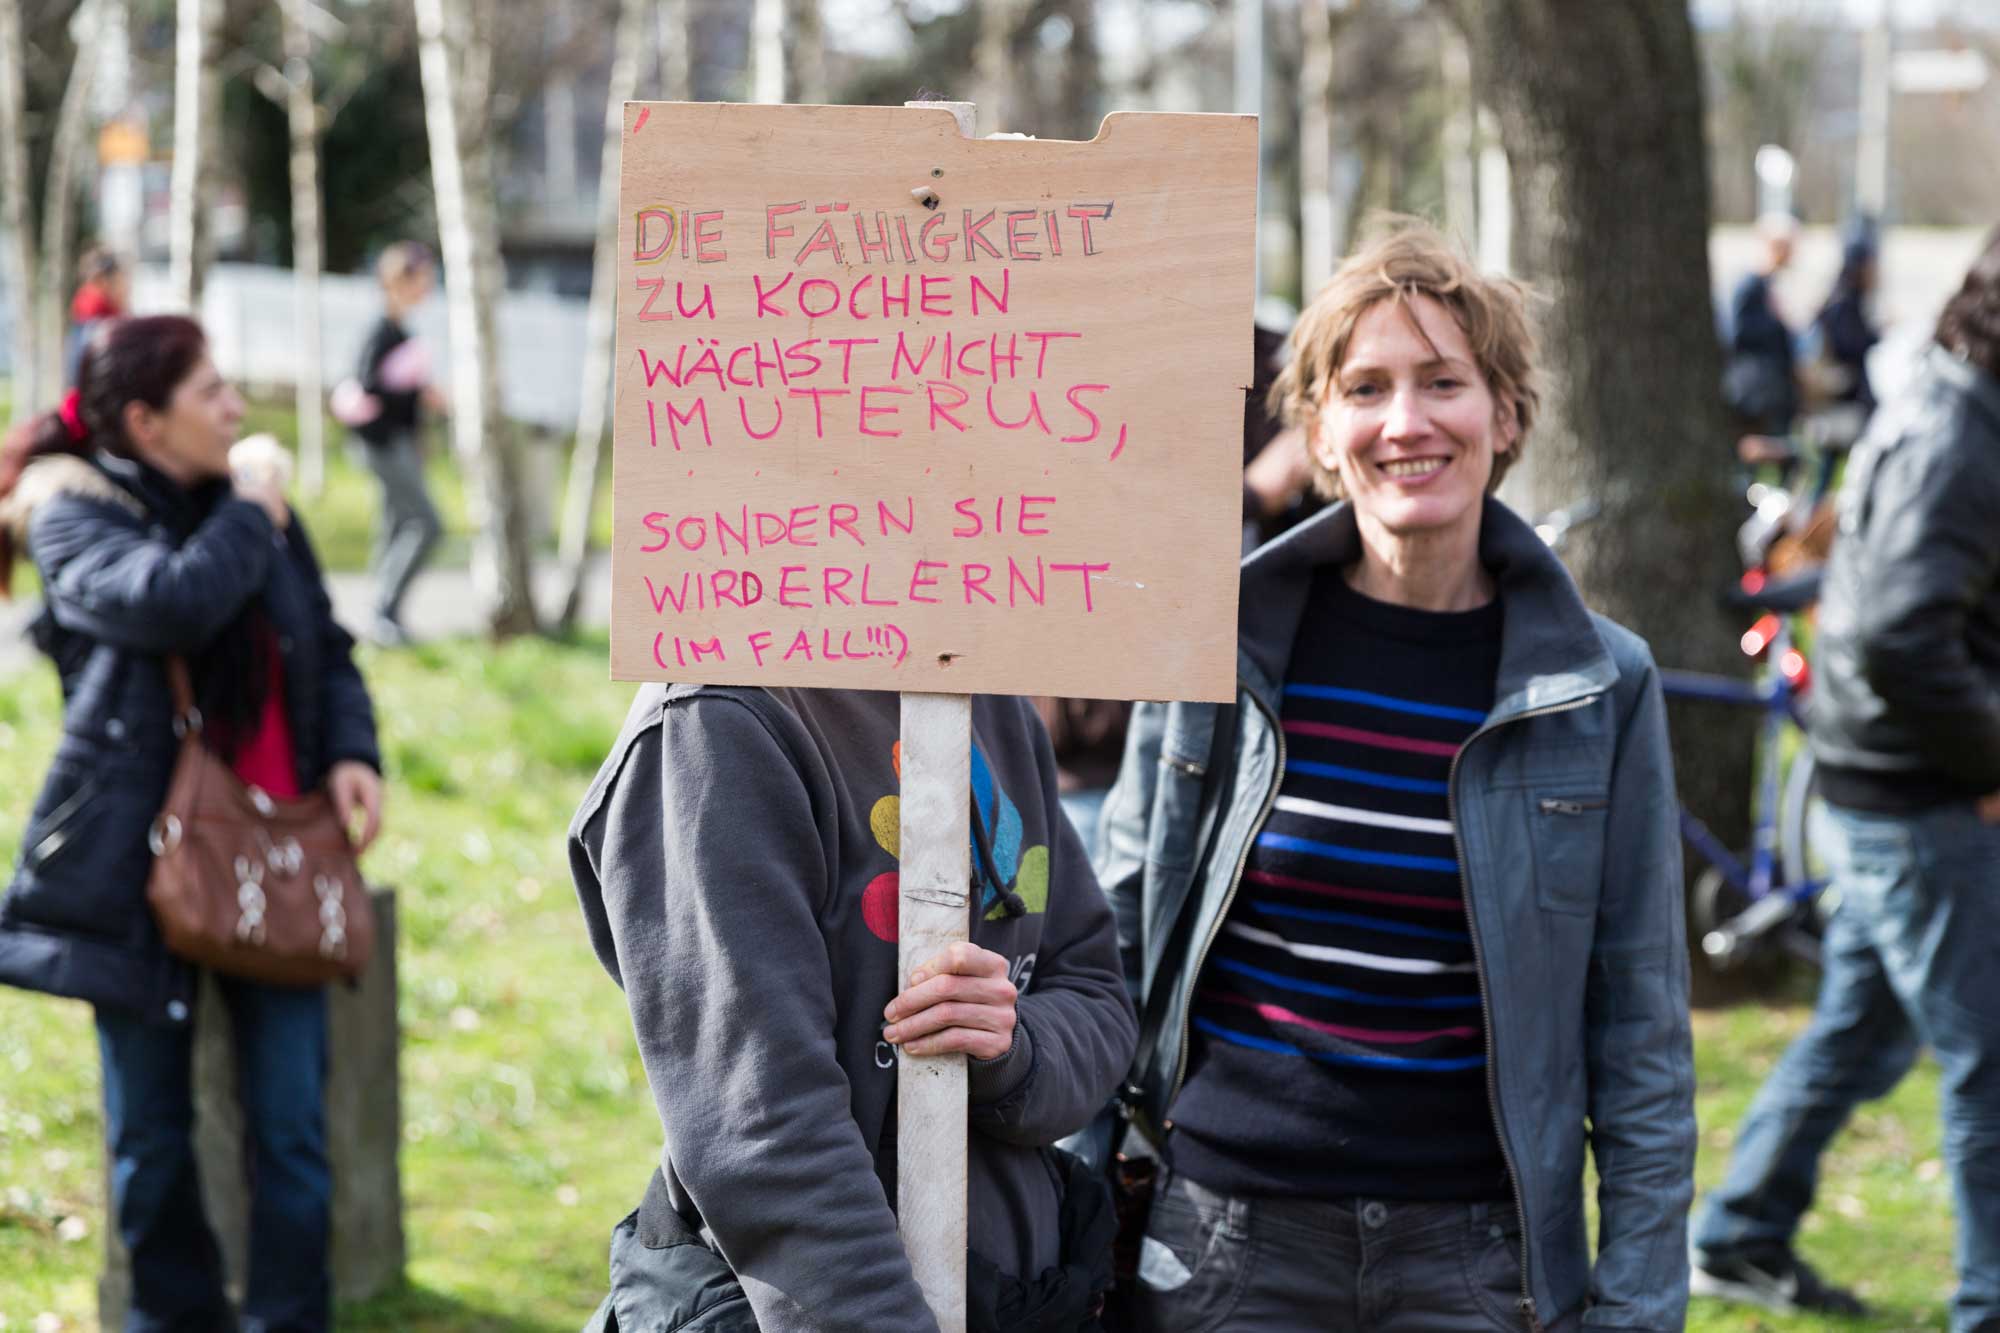 DIE FÄHIGKEIT
ZU KOCHEN
WÄCHST NICHT
IM UTERUS,
SONDERN SIE
WIRD ERLERNT
(IM FALL!!!)